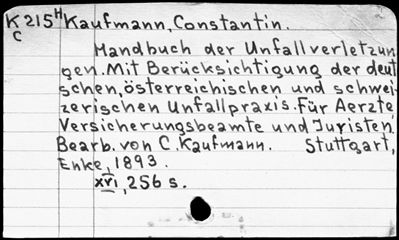 K215H Kaufmann, Constantin.
C
Handbuch der Unfallverletzun
gen. Mit Berücksichtigung der deut
schen, österreichischen und schwei-
zerischen Unfallpraxis. Für Aerzte,
Versicherungsbeamte und Juristen.
Bearb. von C. Kaufmann. Stuttgart,
Enke, 1893.
xvi, 256 s.